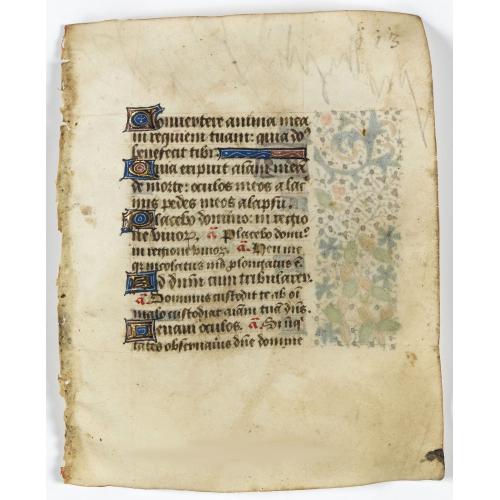 Convertere anima mea
in requiem tuam: quia dns
benefecit tibi
Quia eripuit aiam meā
de morte: oculos meos a lac
mis pedes meos a lapsu.
Placebo domino: in regio
ne vivoꝝ. a Placebo domi°
in regione vivoꝝ. a Heu me
qꝛ incolatus mꝰ plongatus ē.
Ad dnm cum tribularer.
a Dominus custodit te ab oī
malo custodiat aiam tuā dns.
Levavi oculos. a Si iniq
tates observaūis dne domine